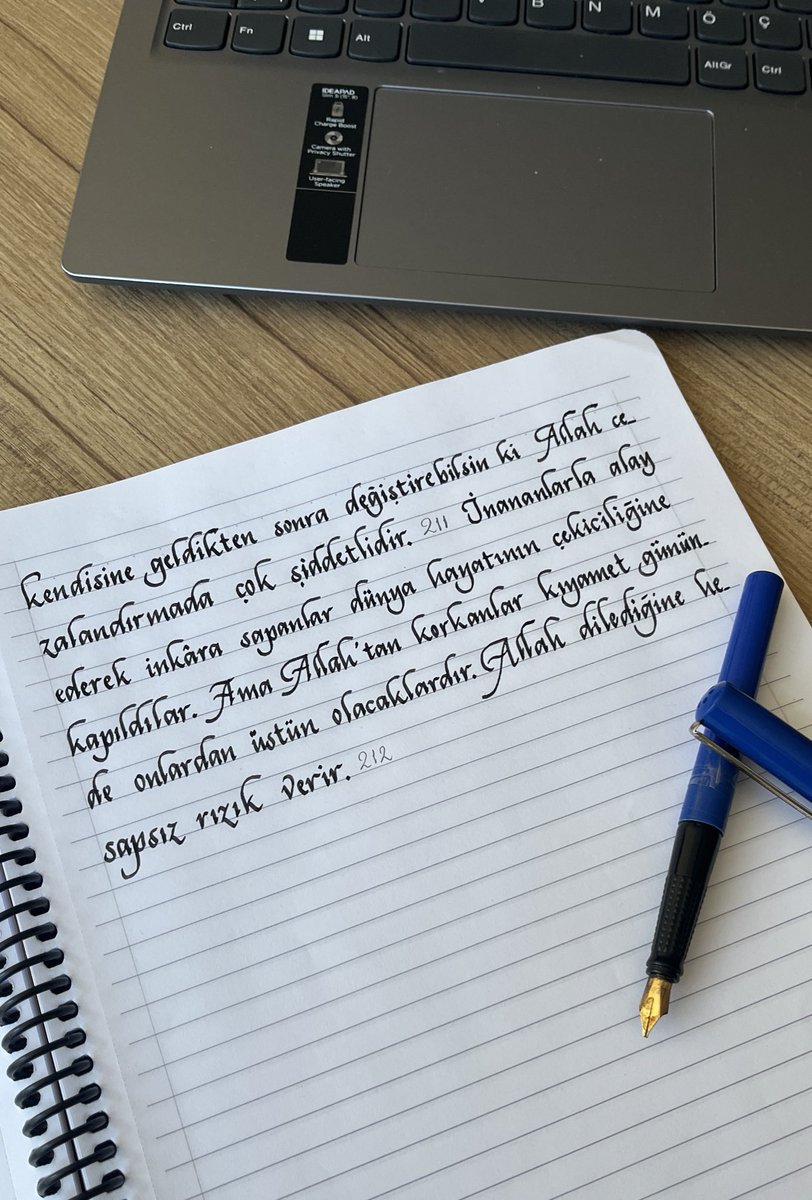 B N M Ö Ç
Ctrl Fn Alt AltGr Ctrl
IDEAPAD
Rapid
Charge Boost
Camera with
Privacy Shutter
User-facing
Speaker
kendisine geldikten sonra değiştirebilsin ki Allah ce-
zalandırmada çok şiddetlidir. 211 İnananlarla alay
ederek inkâra sapanlar dünya hayatının çekiciliğine
kapıldılar. Ama Allah'tan korkanlar kıyamet günün-
de onlardan üstün olacaklardır. Allah dilediğine he-
sapsız rızık verir. 212